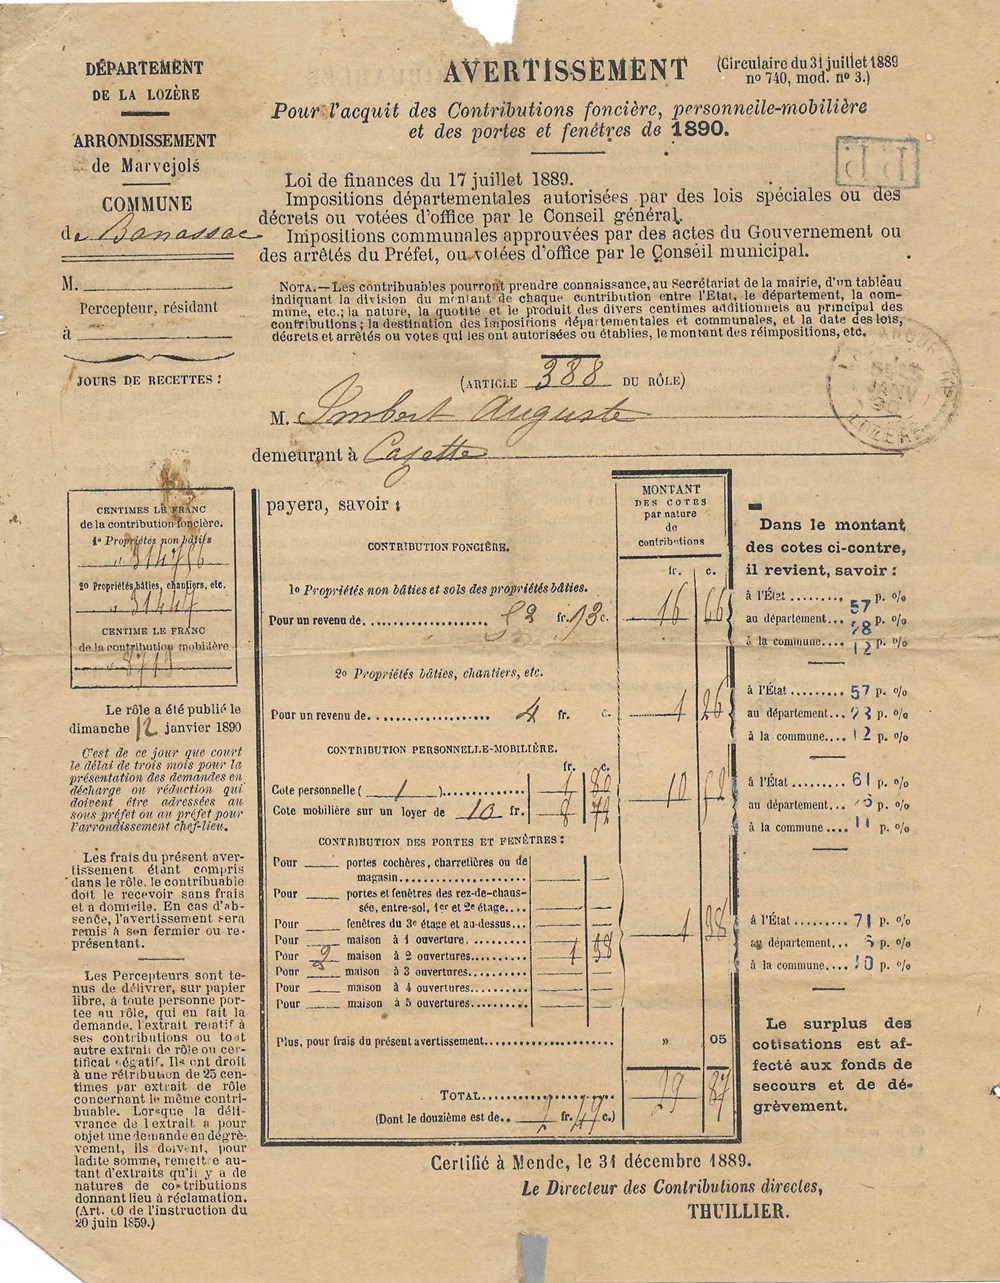 DÉPARTEMENT
DE LA LOZÈRE
ARRONDISSEMENT
de Marvejols
COMMUNE
de Banassac
M.
Percepteur, résidant
à
JOURS DE RECETTES :
AVERTISSEMENT
(Circulaire du 31 juillet 1889
no 740, mod. no 3.)
Pour l'acquit des Contributions foncière, personnelle-mobilière
et des portes et fenêtres de 1890.
Loi de finances du 17 juillet 1889.
Impositions départementales autorisées par des lois spéciales ou des
décrets ou votées d'office par le Conseil général.
Impositions communales approuvées par des actes du Gouvernement ou
des arrêtés du Préfet, ou votées d'office par le Conseil municipal.
NOTA. — Les contribuables pourront prendre connaissance, au Secrétariat de la mairie, d'un tableau
indiquant la division du montant de chaque contribution entre l'Etat, le département, la com-
mune, etc.; la nature, la quotité et le produit des divers centimes additionnels au principal des
contributions; la destination des impositions départementales et communales, et la date des lois,
décrets et arrêtés ou votes qui les ont autorisées ou établies, le montant des réimpositions, etc.
(ARTICLE 388 DU RÔLE)
JANV
LOZÈRE
M. Imbert Auguste
demeurant à Cazette
CENTIMES LE FRANC
de la contribution foncière.
1o Propriétés non bâties
" 314756
2o Propriétés bâties, chantiers, etc.
" 31447
CENTIME LE FRANC
de la contribution mobilière
" 8719
Le rôle a été publié le
dimanche 12 janvier 1890
C'est de ce jour que court
le délai de trois mois pour la
présentation des demandes en
décharge ou réduction qui
doivent être adressées au
sous préfet ou au préfet pour
l'arrondissement chef-lieu.
Les frais du présent aver-
tissement étant compris
dans le rôle, le contribuable
doit le recevoir sans frais
et a domicile. En cas d'ab-
sence, l'avertissement sera
remis à son fermier ou re-
présentant.
Les Percepteurs sont te-
nus de délivrer, sur papier
libre, à toute personne por-
tée au rôle, qui en fait la
demande, l'extrait relatif à
ses contributions ou tout
autre extrait de rôle ou cer-
tificat négatif. Ils ont droit
à une rétribution de 25 cen-
times par extrait de rôle
concernant le même contri-
buable. Lorsque la déli-
vrance de l'extrait a pour
objet une demande en dégrè-
vement, ils doivent, pour
ladite somme, remettre au-
tant d'extraits qu'il y a de
natures de contributions
donnant lieu à réclamation.
(Art. 60 de l'instruction du
20 juin 1859.)
payera, savoir :
MONTANT
DES COTES
par nature
de
contributions
fr. c.
CONTRIBUTION FONCIÈRE.
1o Propriétés non bâties et sols des propriétés bâties.
Pour un revenu de 52 fr. 93 c. 16 66
2o Propriétés bâties, chantiers, etc.
Pour un revenu de 4 fr. c. 1 26
CONTRIBUTION PERSONNELLE-MOBILIÈRE.
fr. c.
Cote personnelle ( 1 ) 1 80
Cote mobilière sur un loyer de 10 fr. 8 72
10 52
CONTRIBUTION DES PORTES ET FENÊTRES :
Pour portes cochères, charretières ou de
magasin
Pour portes et fenêtres des rez-de-chaus-
sée, entre-sol, 1er et 2e étage
Pour fenêtres du 3e étage et au-dessus
Pour maison à 1 ouverture.
Pour 2 maison à 2 ouvertures 1 38
1 38
Pour maison à 3 ouvertures
Pour maison à 4 ouvertures
Pour maison à 5 ouvertures
Plus, pour frais du présent avertissement » 05
TOTAL 29 87
(Dont le douzième est de 2 fr. 49 c.)
Dans le montant
des cotes ci-contre,
il revient, savoir :
à l'État 57 p. %
au département 28 p. %
à la commune 12 p. %
à l'État 57 p. %
au département 23 p. %
à la commune 12 p. %
à l'État 61 p. %
au département p. %
à la commune 11 p. %
à l'État 71 p. %
au département 6 p. %
à la commune 10 p. %
Le surplus des
cotisations est af-
fecté aux fonds de
secours et de dé-
grèvement.
Certifié à Mende, le 31 décembre 1889.
Le Directeur des Contributions directes,
THUILLIER.